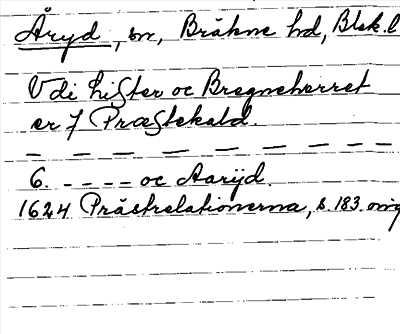 Åryd, sn, Bräkne hd, Blek. l
Vdi Lister oc Bregneherret
er 7 Præstekald.
— — — — — — — — —
6. – – – – oc Aarijd.
1624 Prästrelationerna, s. 183. orig